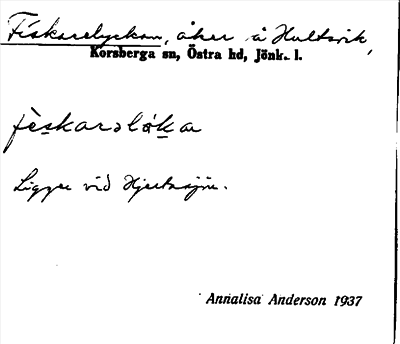 Fiskarelyckan, åker å Hultsvik,
Korsberga sn, Östra hd, Jönk. l.
fèskarəlókar
Ligger vid Hjertasjön.
Annalisa Anderson 1937